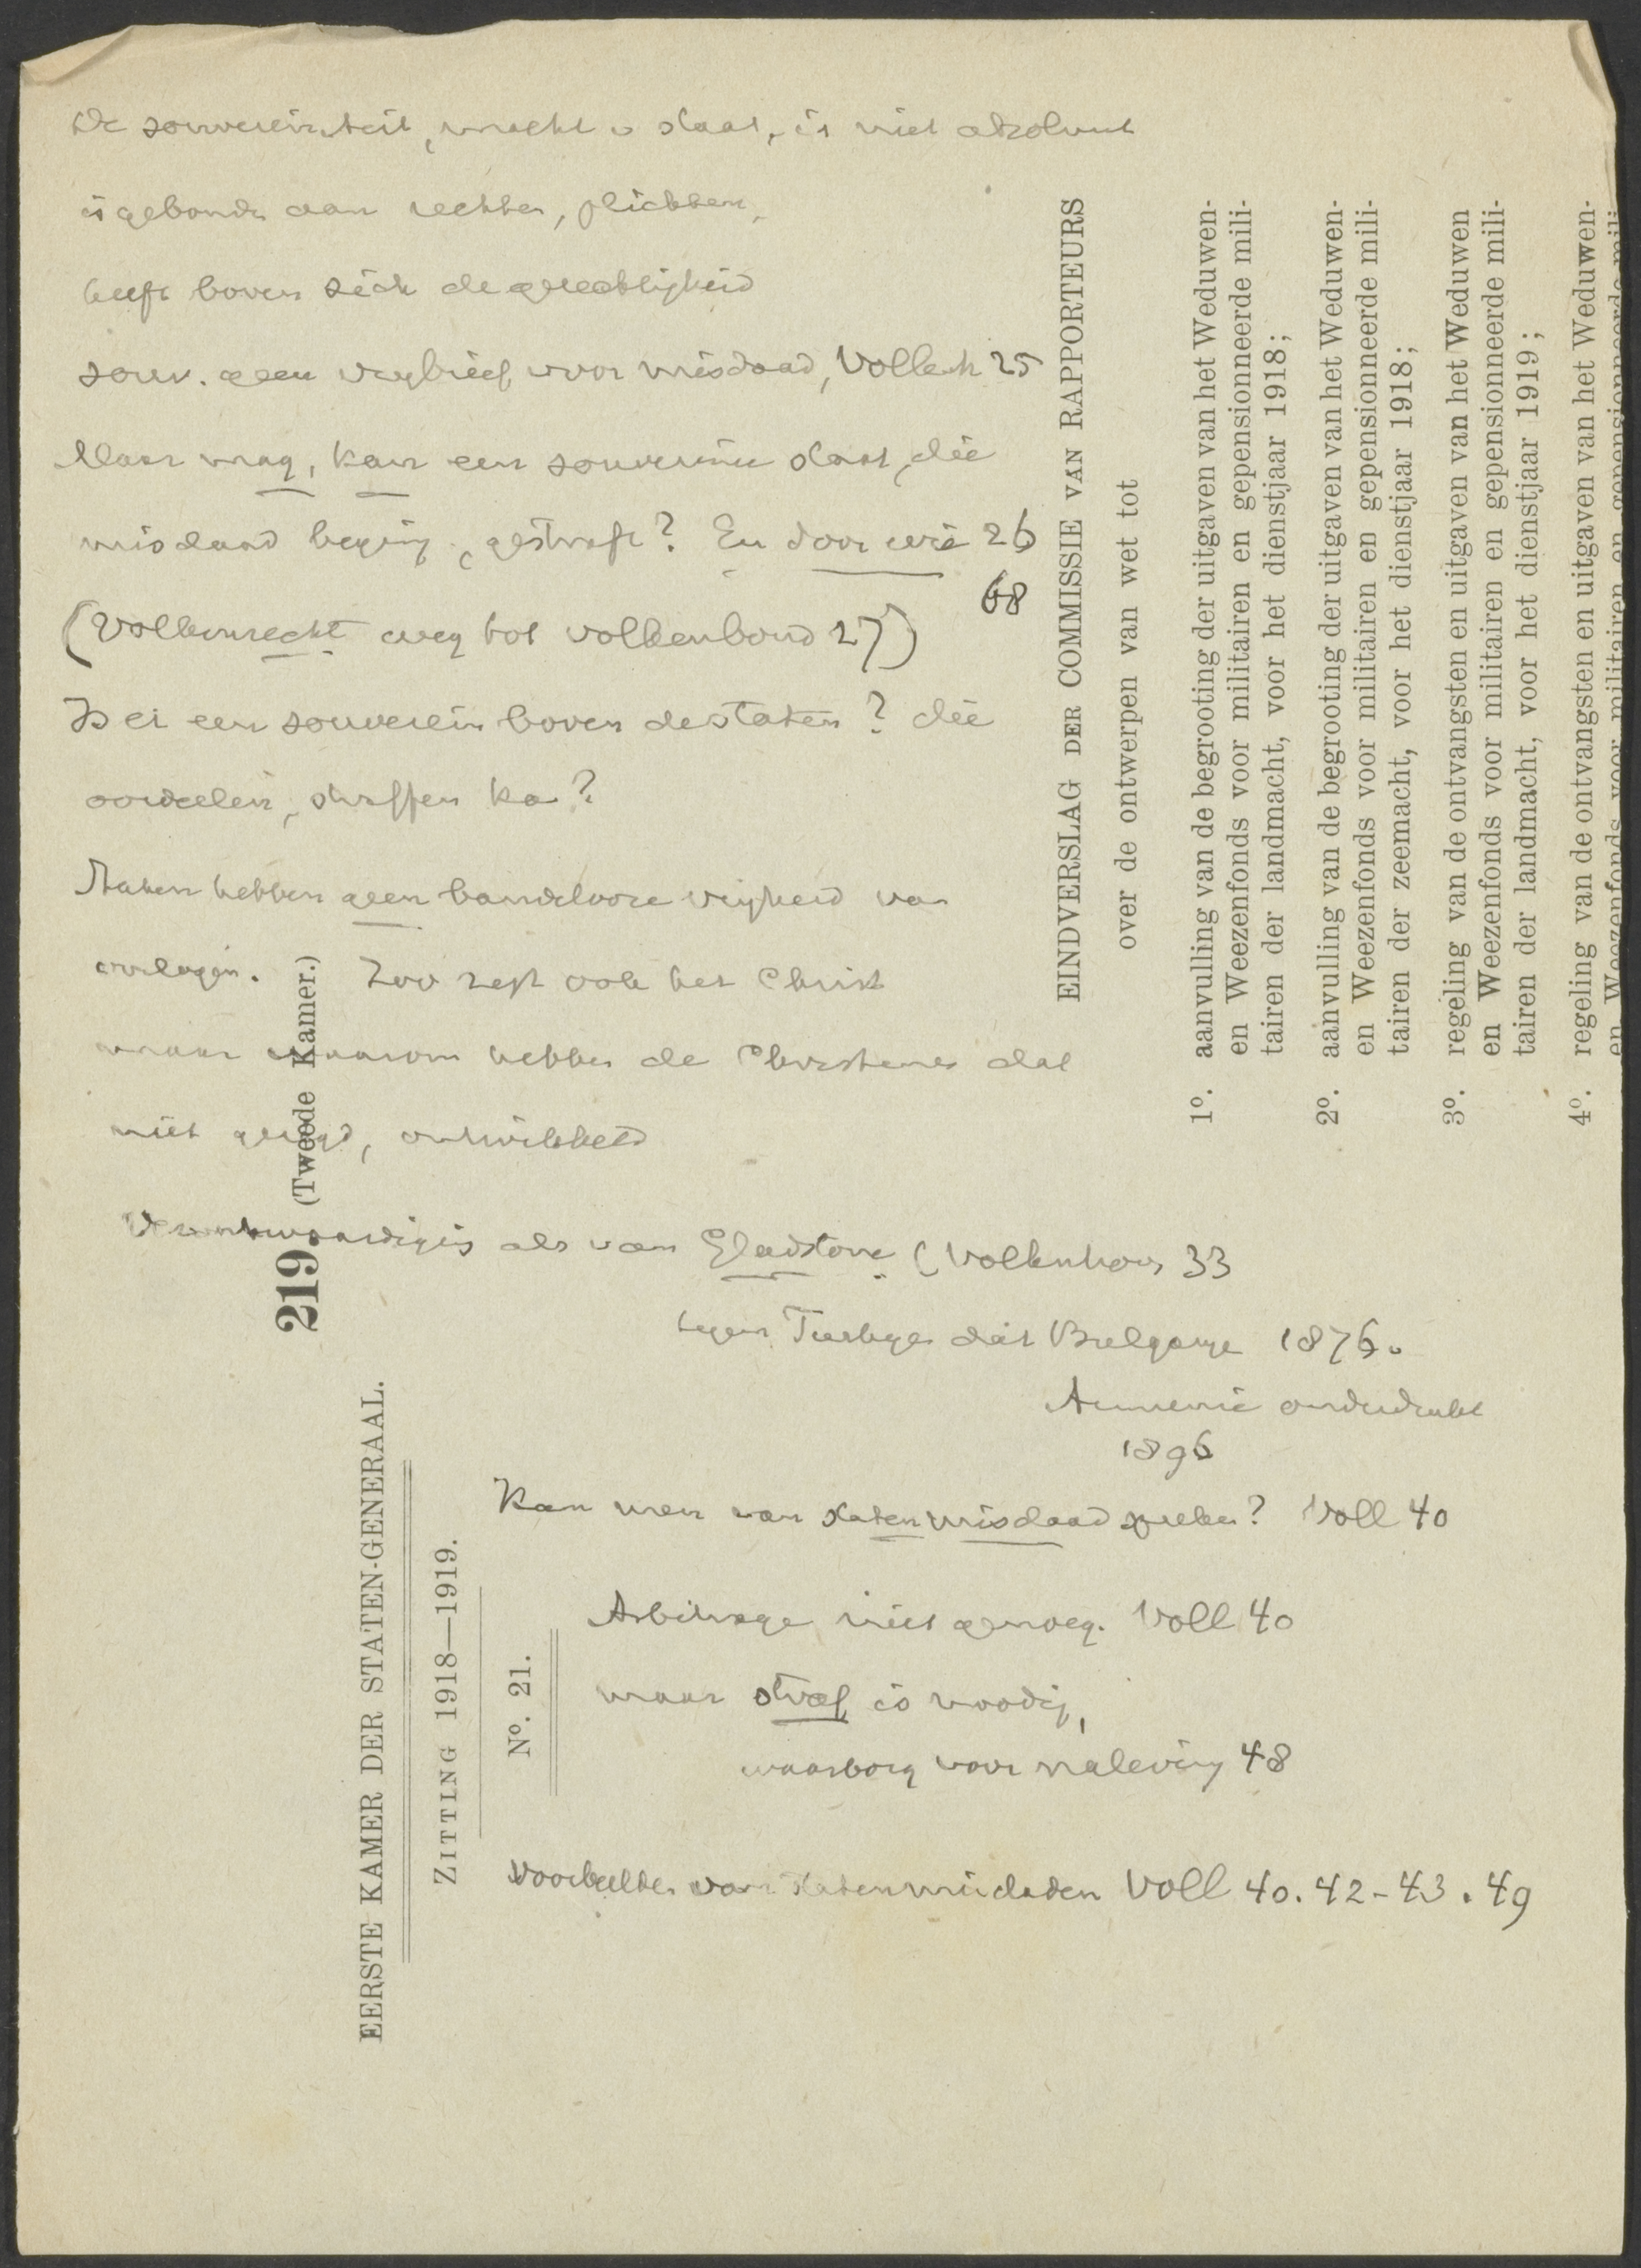 De souvereiniteit, macht v staat, is niet absoluut
is gebonden aan rechten, plichten,
heeft boven zich de gerechtigheid
souv. geen vrijbrief voor misdaad, Vollenh 25
Maar vraag, kan een souvereine staat, die
misdaad beging, gestraft? En door wie 26
68
(Volkenrecht weg tot volkenbond 27)
Is er een souverein boven de staten? die
oordeelen, straffen kan?
Staten hebben geen bandelooze vrijheid van
oorlogen. Zoo zegt ook het Christ
maar waarom hebben de Christenen dat
niet gezegd, ontwikkeld
Verontwaardiging als van Gladstone (Vollenhoven 33
tegen Turkije dat Bulgarije 1876.
Armenie onderdrukt
1896
Kan men van statenmisdaad spreken? Voll 40
Arbitrage niet genoeg. Voll 40
maar straf is noodig,
waarborg voor naleving 48
Voorbeelden van statenmisdaden Voll 40. 42-43. 49
219. (Tweede Kamer.)
EERSTE KAMER DER STATEN-GENERAAL.
ZITTING 1918—1919.
No. 21.
EINDVERSLAG DER COMMISSIE VAN RAPPORTEURS
over de ontwerpen van wet tot
1o. aanvulling van de begrooting der uitgaven van het Weduwen-
en Weezenfonds voor militairen en gepensionneerde mili-
tairen der landmacht, voor het dienstjaar 1918;
2o. aanvulling van de begrooting der uitgaven van het Weduwen-
en Weezenfonds voor militairen en gepensionneerde mili-
tairen der zeemacht, voor het dienstjaar 1918;
3o. regeling van de ontvangsten en uitgaven van het Weduwen
en Weezenfonds voor militairen en gepensionneerde mili-
tairen der landmacht, voor het dienstjaar 1919;
4o. regeling van de ontvangsten en uitgaven van het Weduwen-
en Weezenfonds voor militairen en gepensionneerde mili-